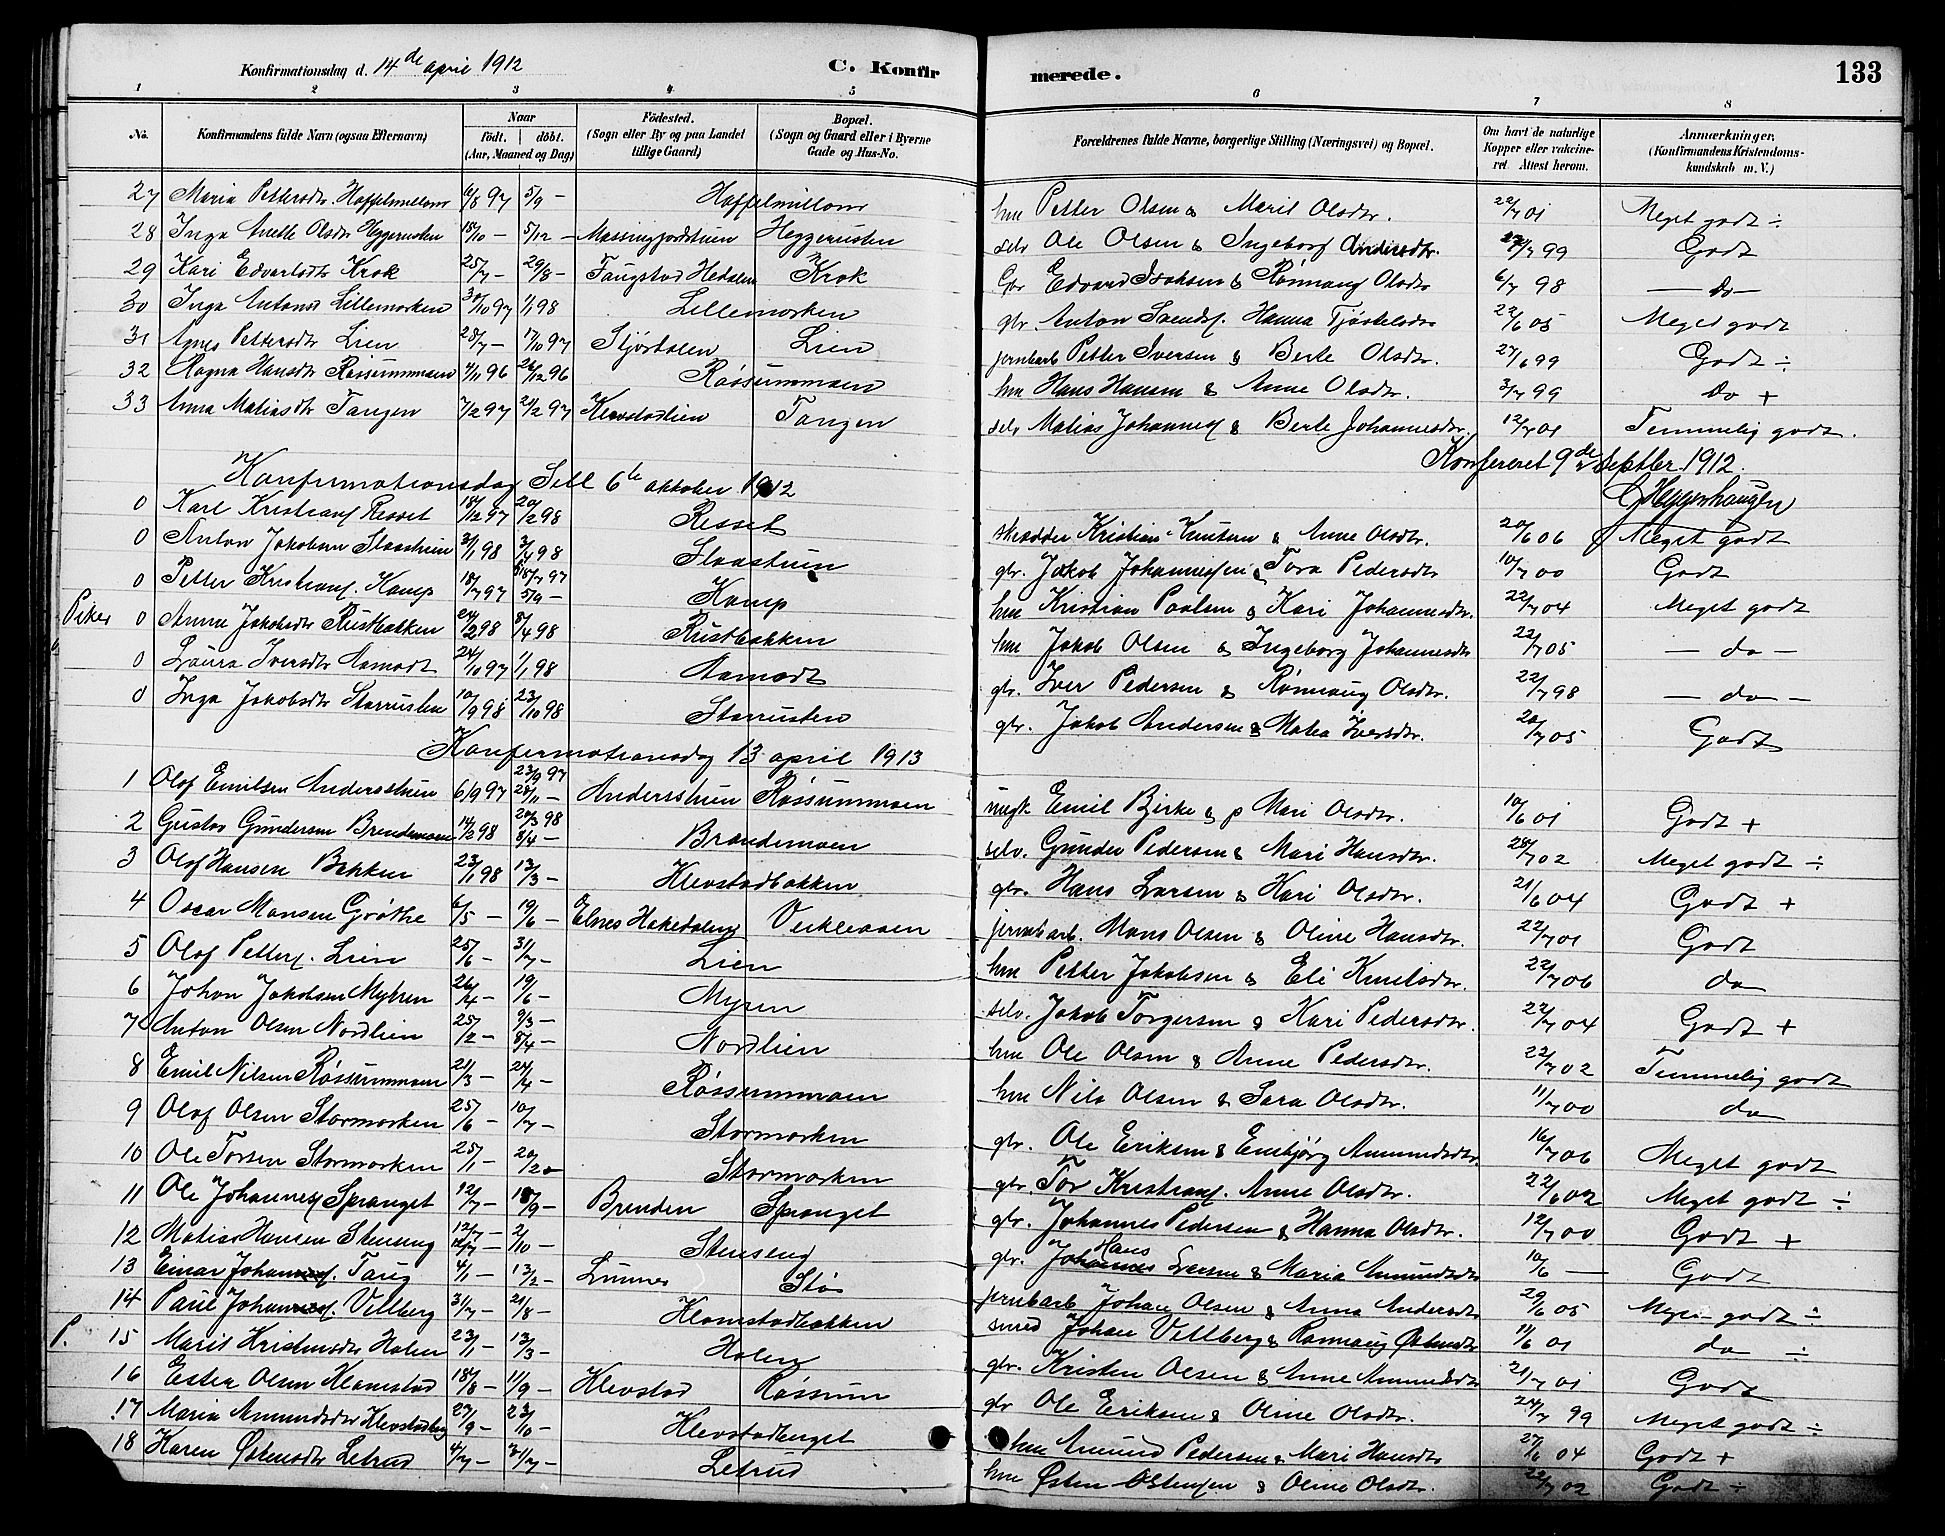 Konfirmationsdag d. 14de april 1912 C. Konfirmerede. 133
1 2 3 4 5 6 7 8
No. Konfirmandens fulde Navn (ogsaa Efternavn) Naar født. døbt. (Aar, Maaned og Dag) Fødested. (Sogn eller By og paa Landet tillige Gaard) Bopæl. (Sogn og Gaard eller i Byerne Gade og Hus-No. Forældrenes fulde Navne, borgerlige Stilling (Næringsvei) og Bopæl. Om havt de naturlige Kopper eller vakcineret. Attest herom. Anmærkninger. (Konfirmandens Kristendomskundskab m. V.)
27 Maria Pettersdtr. 6/8 97 5/9 - hm Petter Olsen & Marit Olsdtr. 22/7 01 Meget godt ÷
28 Inga Olsdtr Heggerusten 18/10 - 5/12 - Heggerusten selv Ole Olsen & Ingeborg Andersdtr. 99 Godt
29 Kari Edvartsdtr Krok 25/7 - 29/8 - Krok Gbr Edvard Isaksen & Rønnaug Olsdtr 6/7 98 - do -
30 Inga Antonsd Lillemorken 30/10 97 1/1 98 Lillemorken gbr. Anton Svends. Hanna 22/6 05 Meget godt
31 Agnes Pettersdtr Lien 28/7 - 17/10 97 Stjørdalen Lien jernbarb Petter Iversen & Berte Olsdtr. 27/6 99 Godt ÷
32 Ragna Hansdtr Røssummoen 4/11 96 26/12 96 Røssummoen hm Hans Hansen & Anne Olsdtr. 3/7 99 do +
33 Anna Matiasdtr Tangen 7/2 97 21/2 97 Klevstadlien Tangen selv Matias Johannes & Berte Johannesdtr. 12/7 01 Temmelig godt.
Konfereret 9de septbr 1912.
Konfirmationsdag Sell 6te oktober 1912
Heggenhaugen
0 Karl Kristians Resset 18/12 97 20/2 98 Resset skrædder Kristian Knutsen & Anne Olsdtr. 20/6 06 Meget godt
0 Anton Jakobsen 3/1 98 3/4 98 gbr. Jakob Johannessen & Tora Pedersdtr 10/7 00 Godt
0 Petter Kristians. Kamp 18/7 97 18/7 97 5/9 - Kamp hm Kristian Paulsen & Kari Johannesdtr. 22/7 04 Meget godt
Piker 0 Anna Jakobsdtr Rustbakken 24/2 98 8/4 98 Rustbakken hm Jakob Olsen & Ingeborg Johannesdtr 22/7 05 - do -
0 Laura Iversdtr Aamodt 24/10 97 1/1 98 Aamodt gbr. Iver Pedersen & Rønnaug Olsdtr. 22/7 98 - do -
0 Inga Jakobsdtr Starrusten 10/9 98 23/10 98 Starrusten gbr. Jakob Andersen & Matea Iversdtr. 20/7 05 Godt
Konfirmationsdag 13 april 1913
1 Olaf Emilsen Andersstuen 6/9 97 23/9 97 28/11 - Andersstuen Røssummoen ungk. Emil Birke & p Mari Olsdtr. 10/6 01 Godt +
2 Gustav Gundersen Brendemoen 14/2 98 20/3 98 8/4 - Brandemoen selv. Gunder Pedersen & Mari Hansdtr. 28/7 02 Meget godt ÷
3 Olaf Hansen Bakken 23/1 98 13/3 - Klevstadbakken gbr. Hans Larsen & Kari Olsdtr. 21/6 04 Godt +
4 Oscar Monsen Grøthe 6/5 - 19/6 - Elnes Hakedalen jernbarb. Mons Olsen & Oline Hansdtr. 22/7 01 Godt
5 Olaf Petters. Lien 25/6 - 31/7 - Lien hm Petter Jakobsen & Eli Knutsdtr. 22/7 06 do
6 Johan Jakobsen Myhren 26/4 - 19/6 - Myren selv. Jakob Torgersen & Kari Pedersdtr. 22/7 04 Godt +
7 Anton Olsen Nordlien 25/2 - 9/3 - 8/4 - Nordlien hm Ole Olsen & Anne Pedersdtr. 22/7 02 Temmelig godt
8 Emil Nilsen Røssummoen 21/3 - 24/4 - Røssummoen hm Nils Olsen & Sara Olsdtr. 11/7 00 do
9 Olaf Olsen Stormorken 25/6 - 10/7 - Stormorken gbr. Ole Eriksen & Embjørg Amundsdtr. 16/7 06 Meget godt
10 Ole Torsen Stormorken 25/1 - 20/2 - Stormorken gbr. Tor Kristians. Anne Olsdtr. 22/6 02 Meget godt ÷
11 Ole Johannes Spranget 12/7 - 18/9 - Brenden Spranget gbr. Johannes Pedersen & Hanna Olsdtr. 12/7 00 Godt +
12 Matias Hansen Stenseng 12/7 - 2/10 - Stenseng gbr. Johannes Hans Larsen & Maria Amundsdtr 10/6 — Godt
13 Einar Johans. Taug 4/1 - 13/2 - Lunner Stø jernbarb Johan Olsen & Anna Andersdtr 29/6 05 Meget godt ÷
14 Paul Johans. Vellberg 31/7 - 21/8 - Klomstadbakken smed Johan Vellberg & Rønnaug Østensdtr 11/6 01 do ÷
P. 15 Marit Kristensdtr Holen 23/1 - 13/3 - Holen gbr. Kristen Olsen & Anne Amundsdtr 21/7 01 Godt
16 Ester Olsen Klomstad 18/8 - 11/9 - Klevstad Røssum gbr Ole Eriksen & Oline Olsdtr. 24/7 99 Meget godt ÷
17 Maria Amundsdtr Klevstadberg 27/9 - 23/10 - Klevstadberget hm Amund Pedersen & Mari Hansdtr 27/6 04 Godt +
18 Karen Østensdtr Letrud 4/7 - 31/7 - Letrud hm Østen Østensen & Oline Olsdtr. 22/7 02 Godt ÷